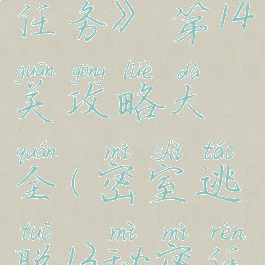 任务》 第14
guān gōng lüè dà
关攻略大
quán mì shì táo
全(密室逃
tuō mì mì rèn
脱13秘密任